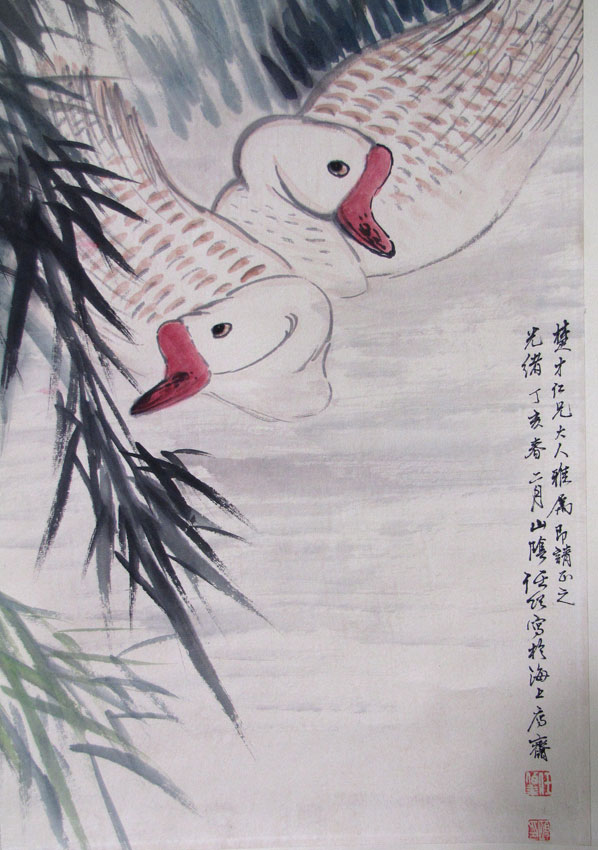 楚才仁兄大人雅属即請正之
光緒丁亥春二月山陰任頤寫於海上寓齋